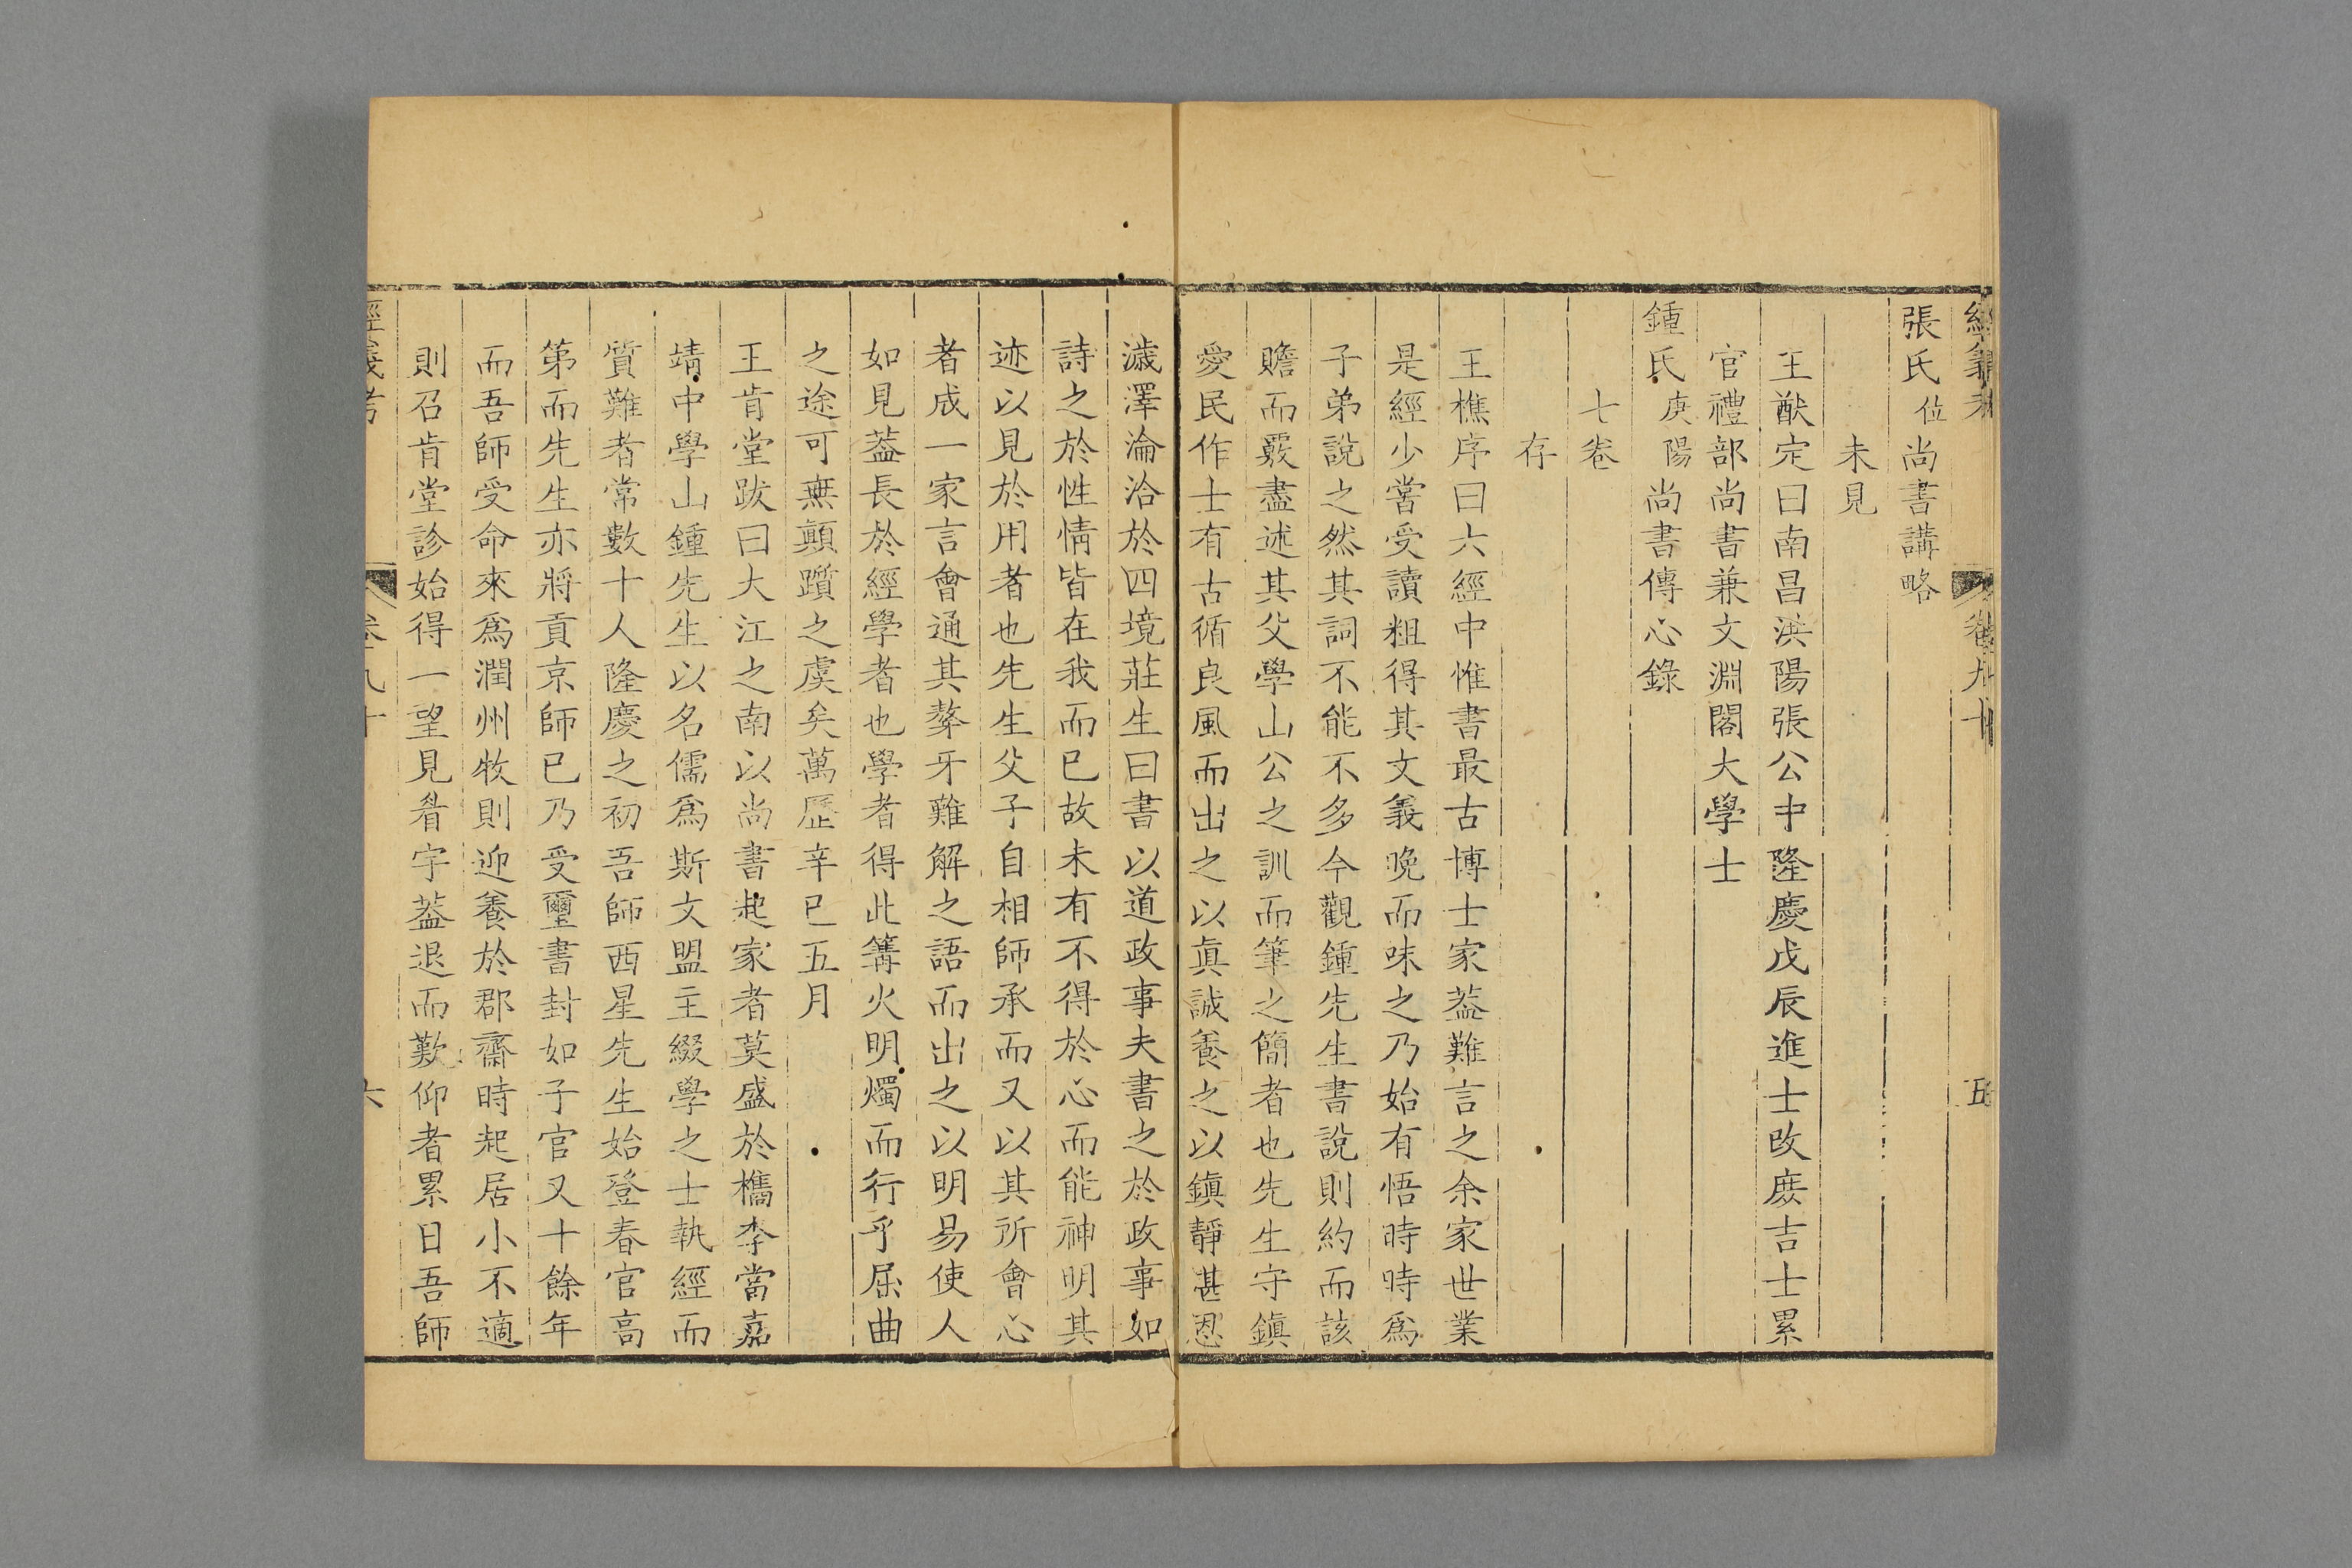 經義考
卷九十
五
張氏位尚書講略
未見
王猷定曰南昌洪陽張公中隆慶戊辰進士改庶吉士累
官禮部尚書兼文淵閣大學士
鍾氏庚陽尚書傳心錄
七卷
存
王樵序曰六經中惟書最古博士家葢難言之余家世業
是經少嘗受讀粗得其文義晚而味之乃始有悟時時爲
子弟說之然其詞不能不多今觀鍾先生書說則約而該
贍而覈盡述其父學山公之訓而筆之簡者也先生守鎮
愛民作士有古循良風而出之以眞誠養之以鎮靜甚恩
濊澤淪洽於四境莊生曰書以道政事夫書之於政事如
詩之於性情皆在我而已故未有不得於心而能神明其
迹以見於用者也先生父子自相師承而又以其所會心
者成一家言會通其聱牙難解之語而出之以明易使人
如見葢長於經學者也學者得此篝火明燭而行乎屈曲
之途可無顛躓之虞矣萬歷辛巳五月
王肯堂跋曰大江之南以尚書起家者莫盛於檇李當嘉
靖中學山鍾先生以名儒爲斯文盟主綴學之士執經而
質難者常數十人隆慶之初吾師西星先生始登春官高
第而先生亦將貢京師已乃受璽書封如子官又十餘年
而吾師受命來爲潤州牧則迎養於郡齋時起居小不適
則召肯堂診始得一望見眉宇葢退而歎仰者累日吾師
經義考
卷九十
六